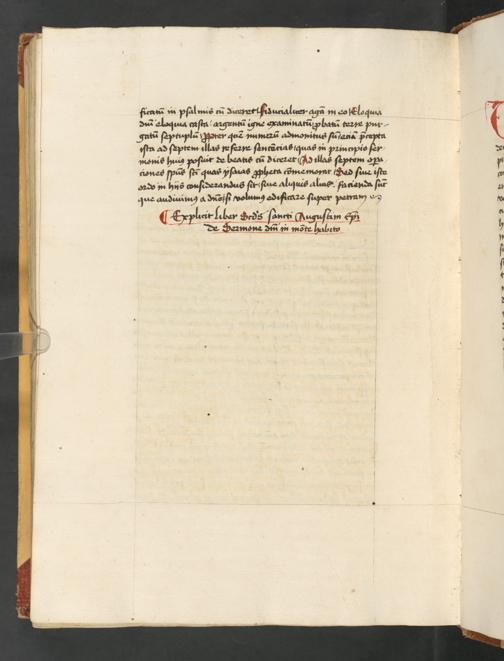 ficatū in psalmis cū diceret Fiducialiter agā in eo Eloquia
dnī eloquia casta argentū igne examinatū pbatū terre pur-
gatū septuplū Ppter quē numerū admonitus sū eciā pcepta
ista ad septem illas referre sentencias quas in principio ser
monis huius posuit de beatis cū diceret Ad illas septem opa
ciones spūs scī quas ysaias ppheta cōmemorat Sed siue iste
ordo in hijs considerandus sit siue aliquis alius. Facienda sūt
que audiuimus a dnō si volumus edificare super petram
Explicit liber Scds sancti Augustini epī
de Sermone dnī in mōte habito